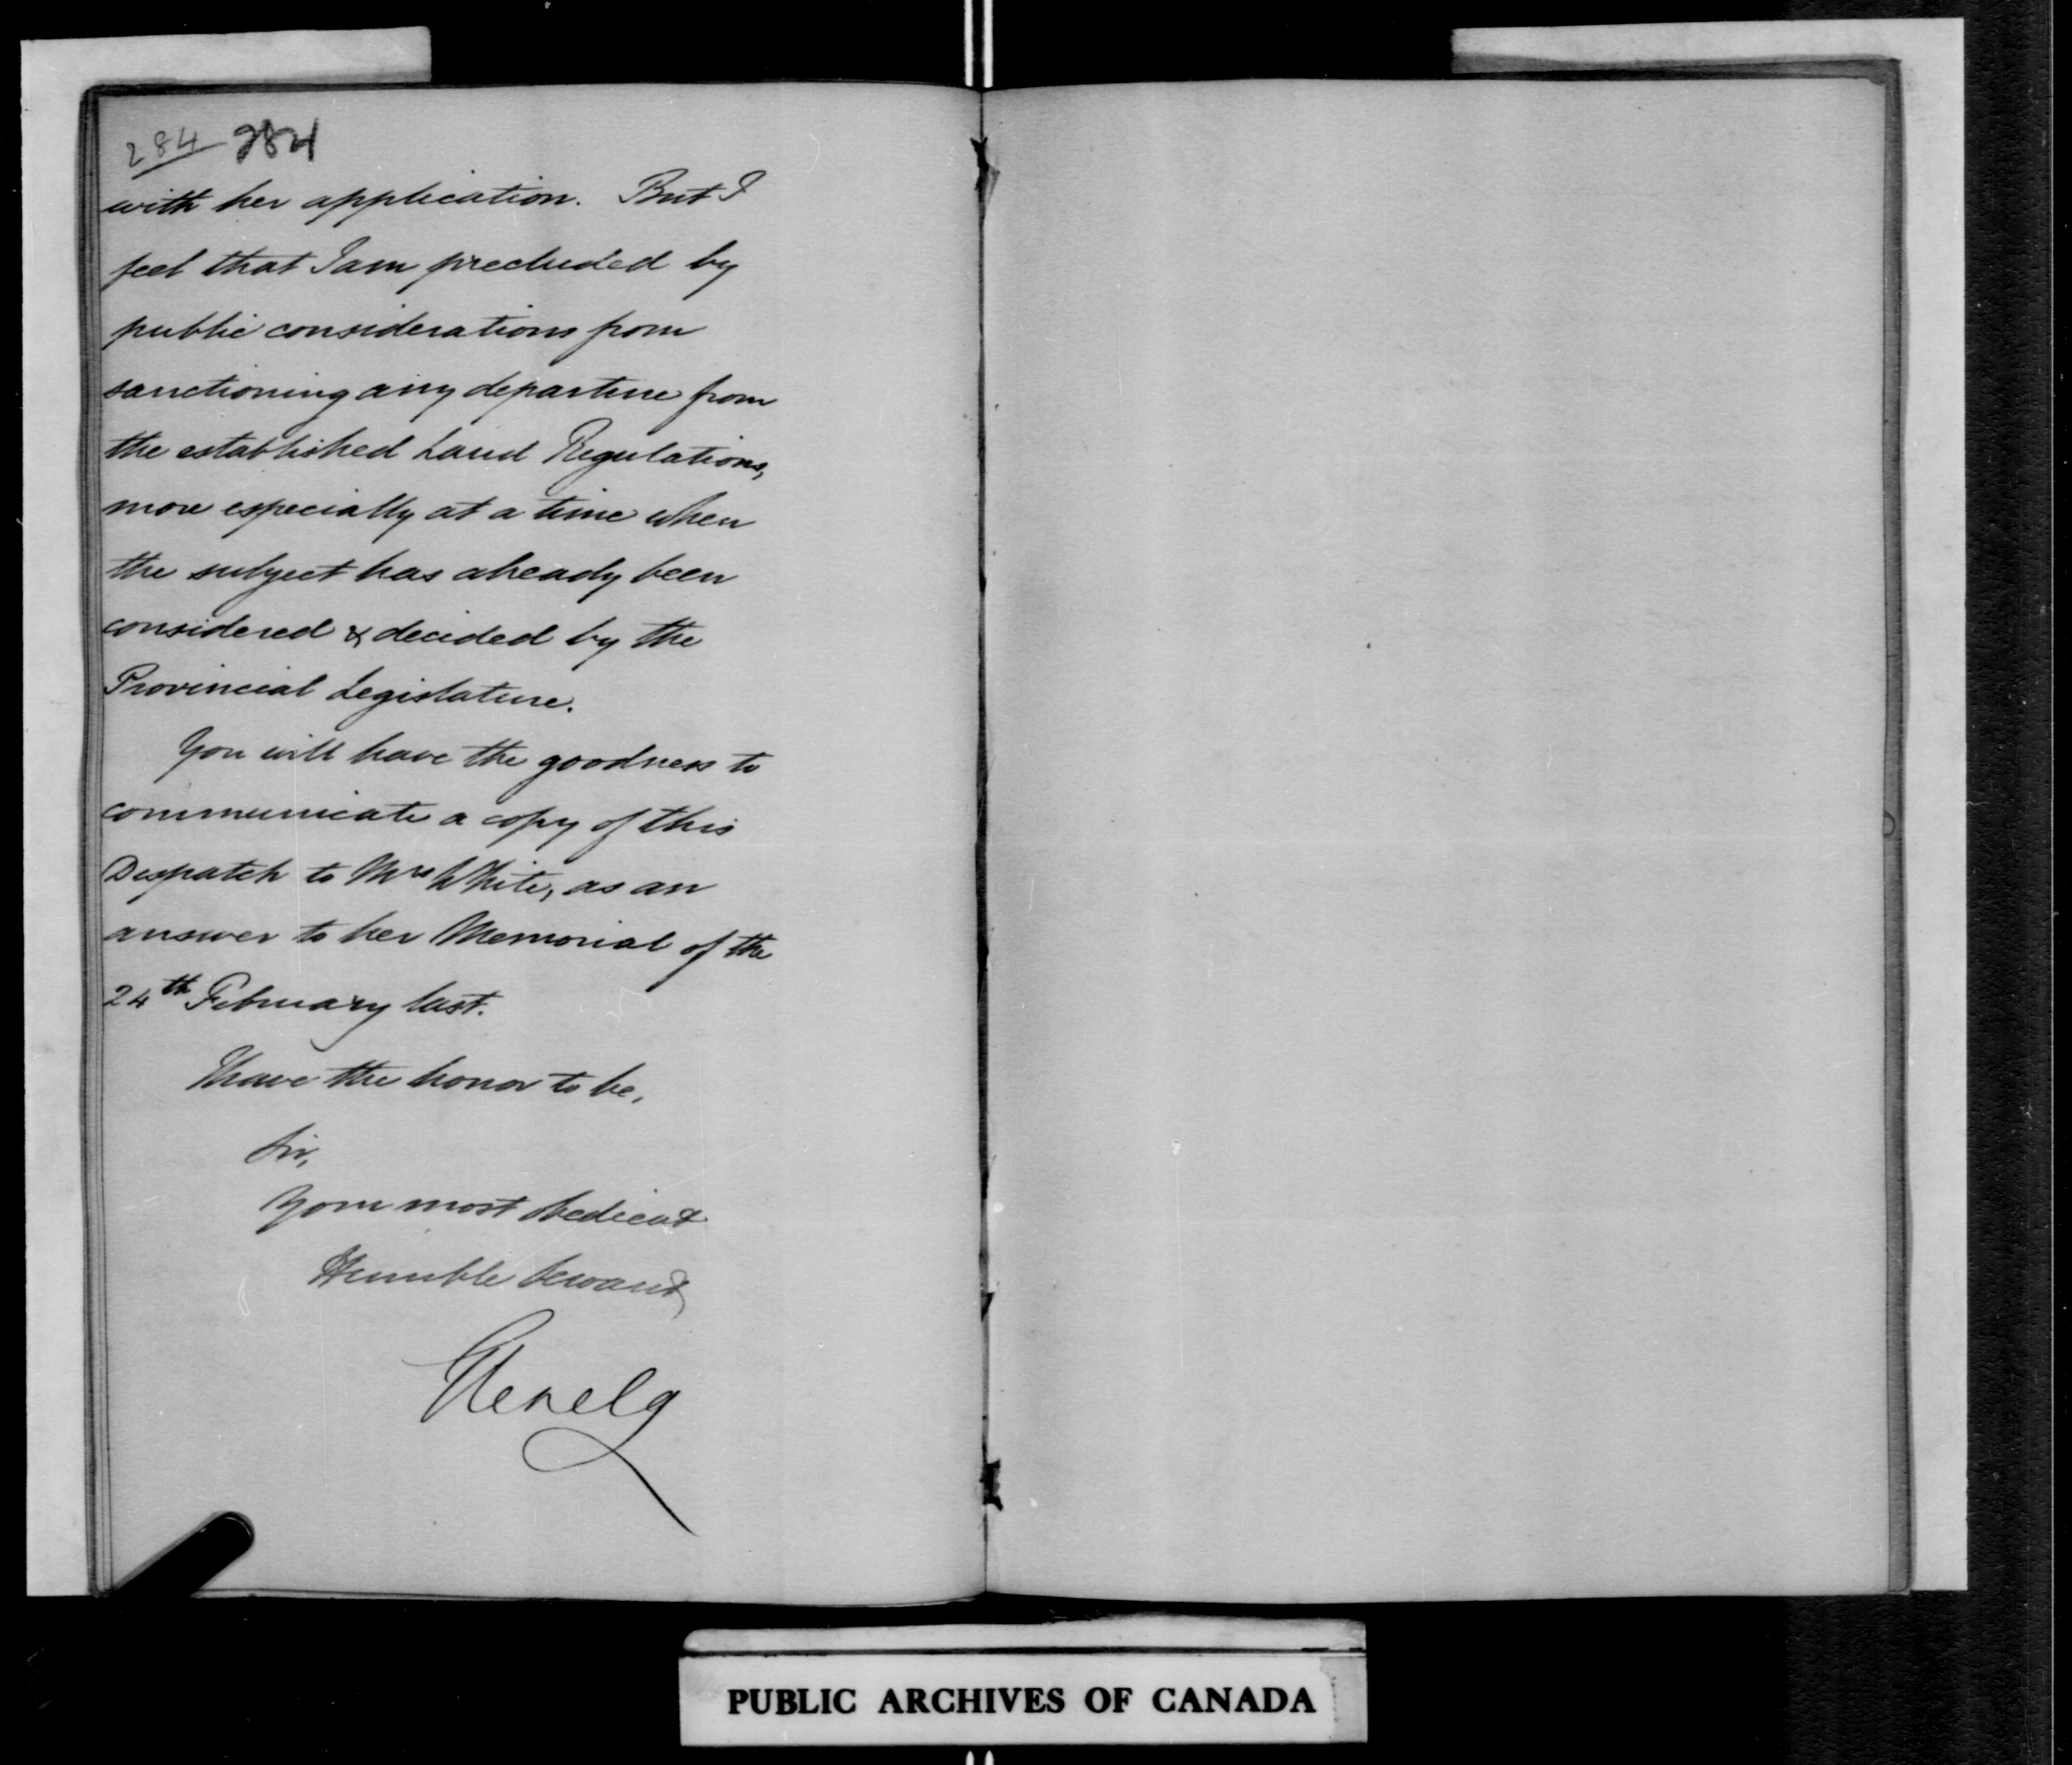 284 284
with her application. But I
feel that I am precluded by
public considerations from
sanctioning any departure from
the established Land Regulations,
more especially at a time when
the subject has already been
considered & decided by the
Provincial Legislature.
You will have the goodness to
communicate a copy of this
Despatch to Mrs White, as an
answer to her Memorial of the
24th February last.
I have the honor to be,
Sir,
Your most obedient
Humble Servant
Glenelg
PUBLIC ARCHIVES OF CANADA